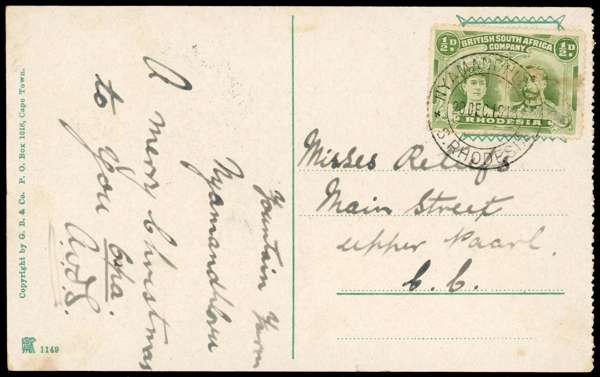 ½D.
BRITISH SOUTH AFRICA
COMPANY
½D.
RHODESIA
DEC
S. RHODESIA
Fountain Farm
Nyamandhlovu
A merry Christmas
to you
A.v.d.S.
Misses
Main Street
Upper Paarl.
C. C.
Copyright by G. B. & Co. P. O. Box 1016, Cape Town.
1149